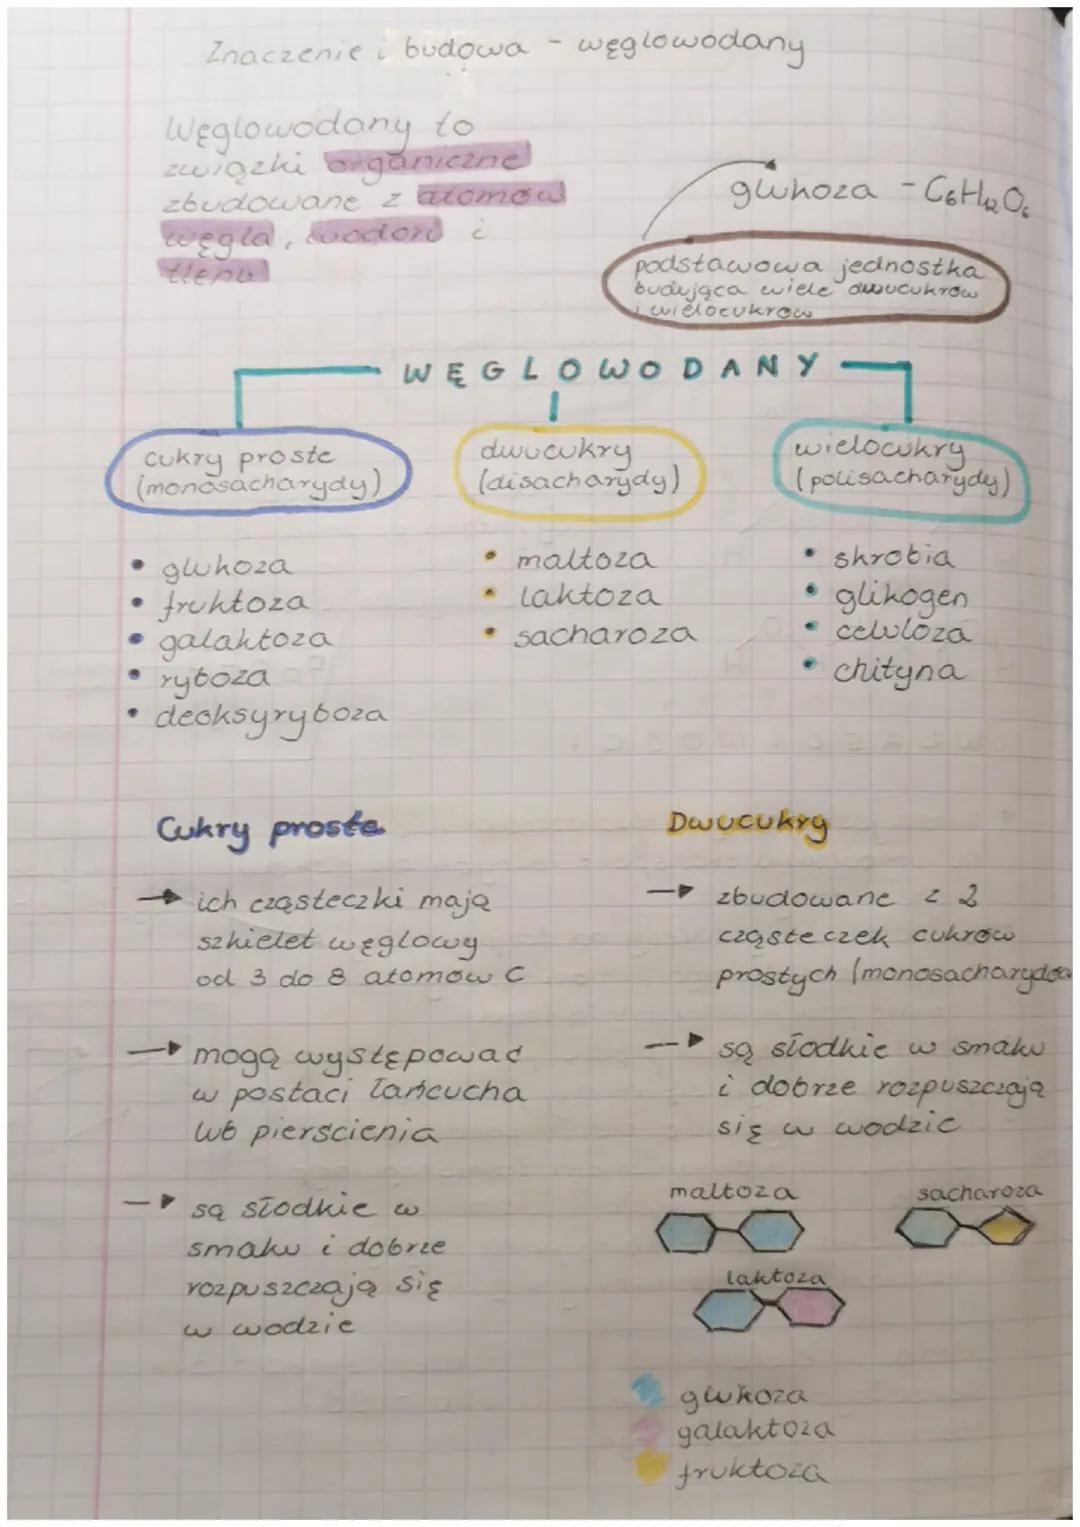 Znaczenie i budowa - węglowodany
Węglowodany to
związki organiczne
zbudowane z atomów
węgla, wodoru i
tlenu
glukoza - C₆H₁₂O₆
podstawowa jednostka
budująca wiele dwucukrów
i wielocukrów
WĘGLOWODANY
cukry proste
(monosacharydy)
• glukoza
• fruktoza
• galaktoza
• ryboza
• deoksyryboza
dwucukry
(disacharydy)
• maltoza
• laktoza
• sacharoza
wielocukry
(polisacharydy)
• skrobia
• glikogen
• celuloza
• chityna
Cukry proste
→ ich cząsteczki mają
szkielet węglowy
od 3 do 8 atomów C
→ mogą występować
w postaci łańcucha
lub pierścienia
→ są słodkie w
smaku i dobrze
rozpuszczają się
w wodzie
Dwucukry
→ zbudowane z 2
cząsteczek cukrów
prostych (monosacharydów
→ są słodkie w smaku
i dobrze rozpuszczają
się w wodzie
maltoza
sacharoza
laktoza
glukoza
galaktoza
fruktoza